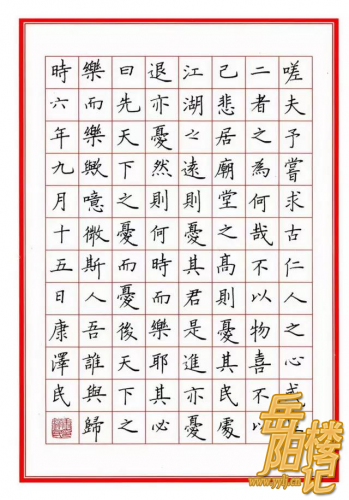 嗟夫予嘗求古仁人之心或
二者之為何哉不以物喜不以
己悲居廟堂之高則憂其民處
江湖之遠則憂其君是進亦憂
退亦憂然則何時而樂耶其必
曰先天下之憂而憂後天下之
樂而樂歟噫微斯人吾誰與歸
時六年九月十五日康澤民
岳阳楼记
www.yylj.cn